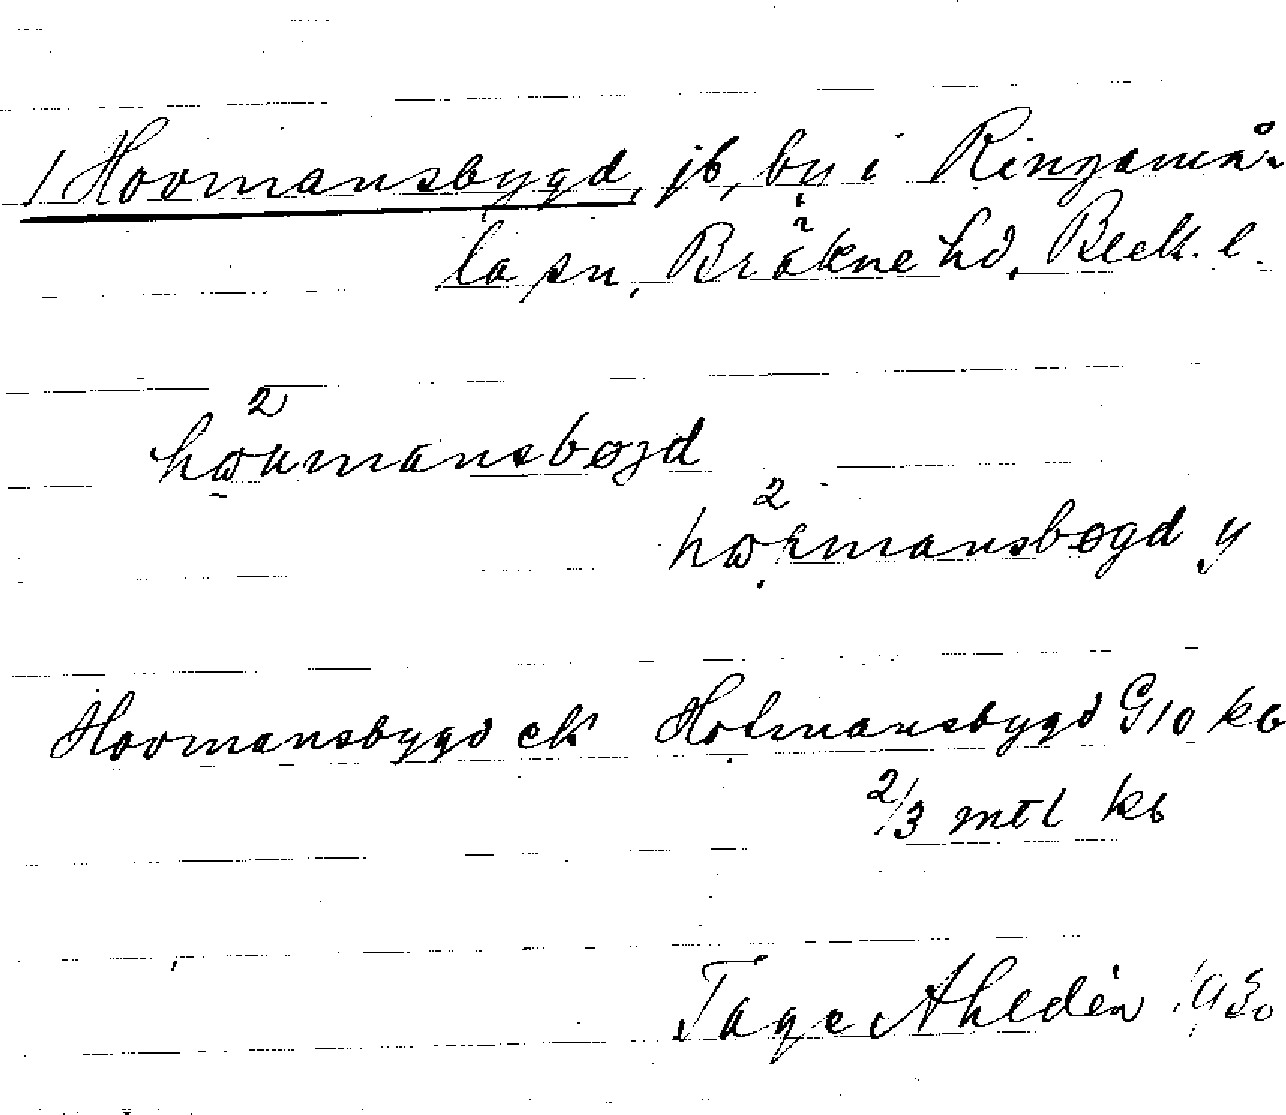 1 Hovmansbygd, jb, by i Ringamå-
la sn, Bräkne hd, Blek. l.
2
mansbøjd
2
mansbøgd y
Hovmansbygd el Hofmansbygd G10 kb
2/3 mtl kb
Tage Ahldén 1930